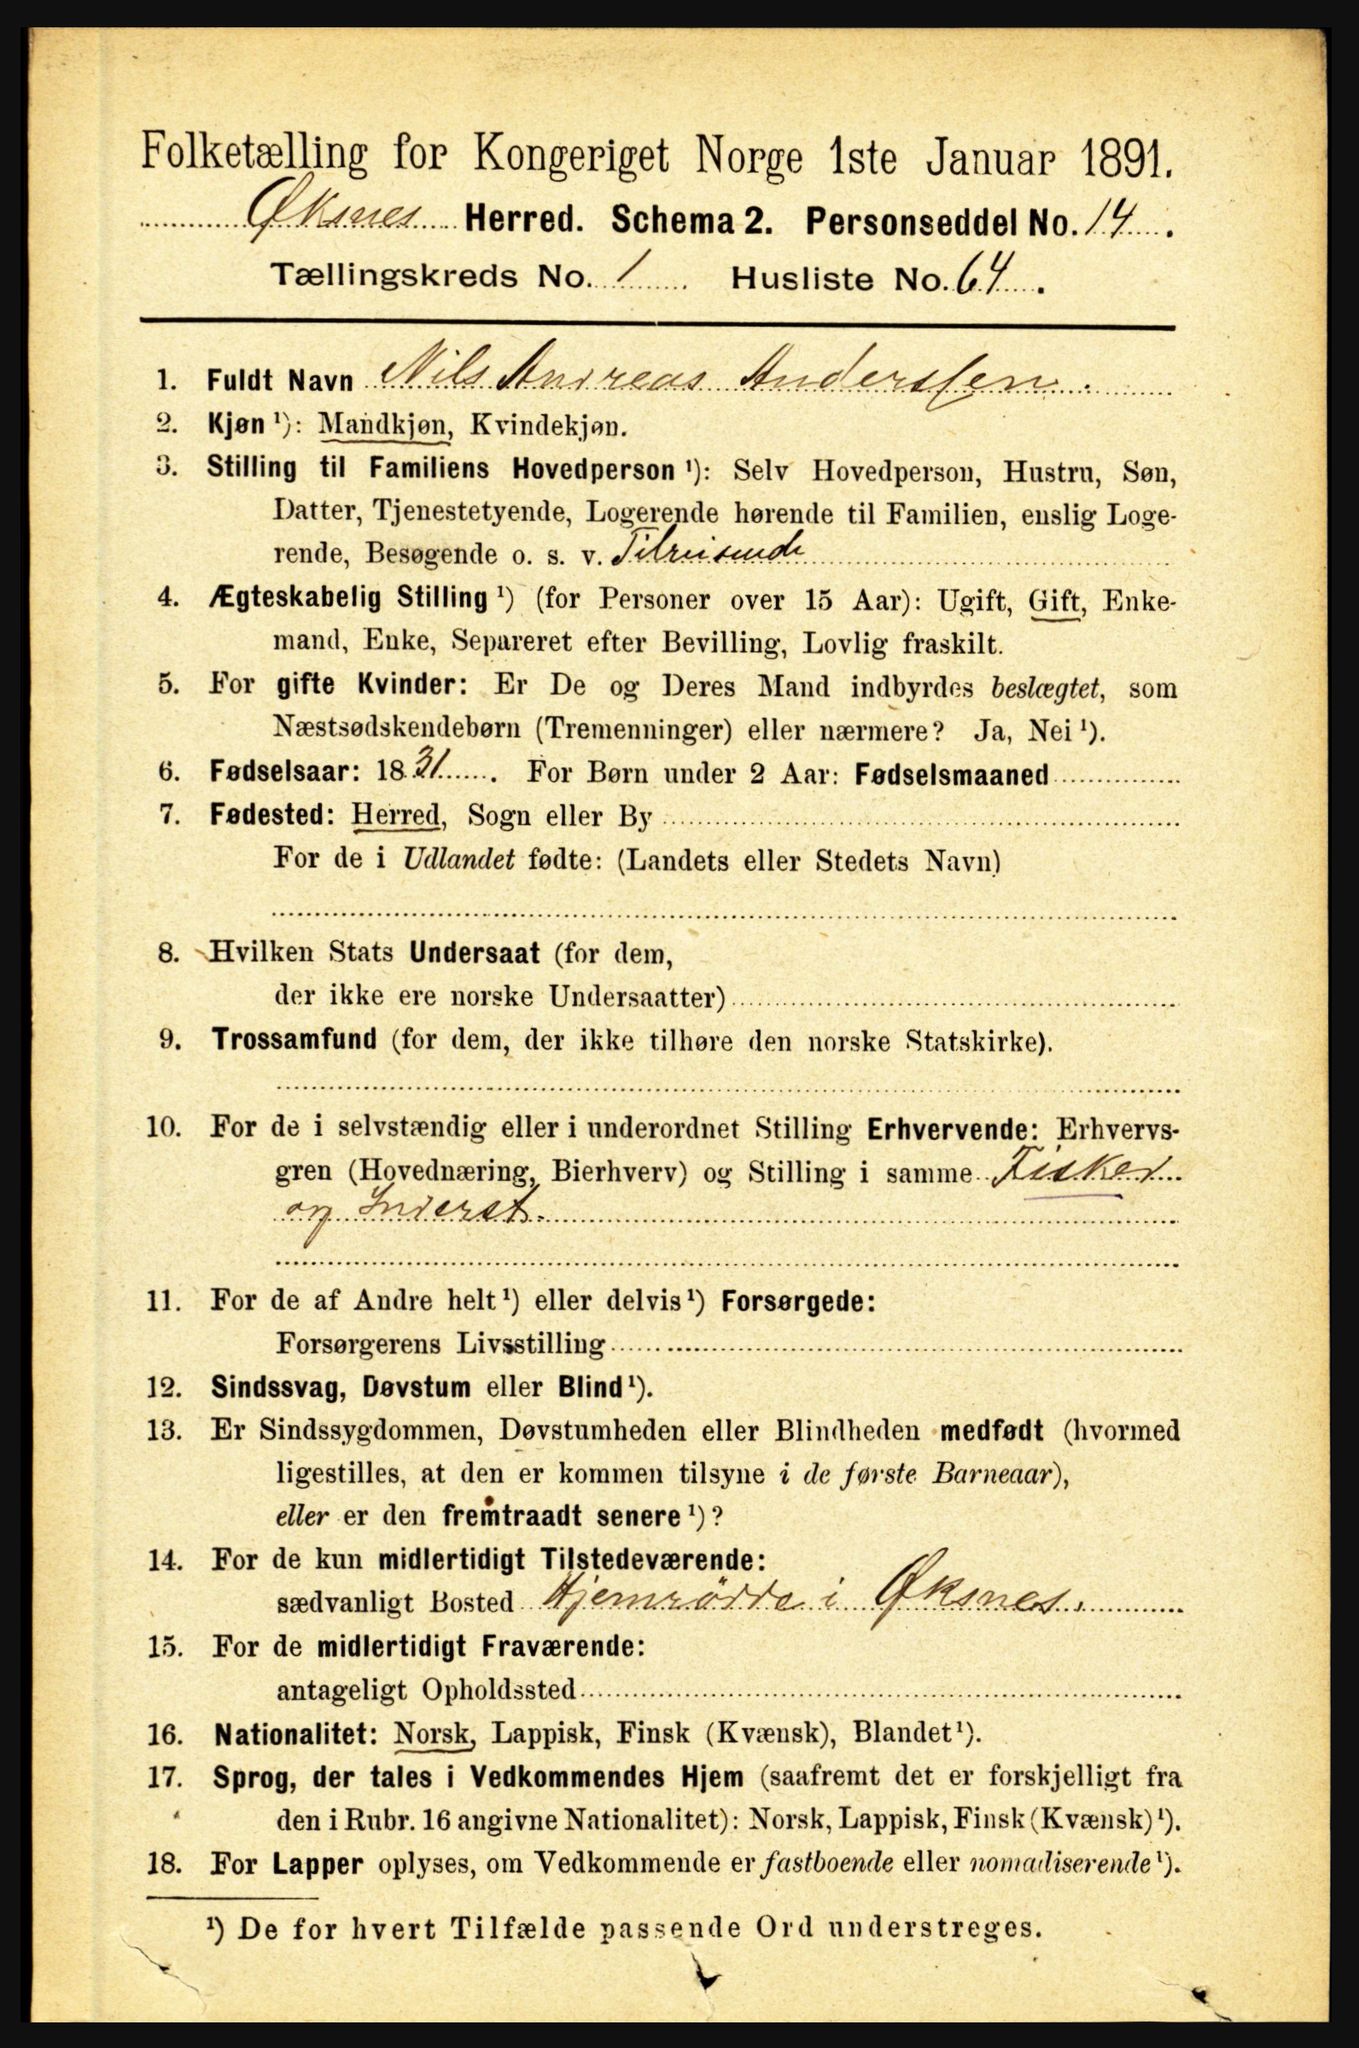 Folketælling for Kongeriget Norge 1ste Januar 1891.
Øksnes Herred. Schema 2. Personseddel No. 14.
Tællingskreds No. 1 Husliste No. 64.
1. Fuldt Navn Nils Andreas Andersen.
2. Kjøn ¹): Mandkjøn, Kvindekjøn.
3. Stilling til Familiens Hovedperson ¹): Selv Hovedperson, Hustru, Søn,
Datter, Tjenestetyende, Logerende hørende til Familien, enslig Loge-
rende, Besøgende o. s. v. Tilreisende
4. Ægteskabelig Stilling ¹) (for Personer over 15 Aar): Ugift, Gift, Enke-
mand, Enke, Separeret efter Bevilling, Lovlig fraskilt.
5. For gifte Kvinder: Er De og Deres Mand indbyrdes beslægtet, som
Næstsødskendebørn (Tremenninger) eller nærmere? Ja, Nei ¹).
6. Fødselsaar: 1831. For Børn under 2 Aar: Fødselsmaaned
7. Fødested: Herred, Sogn eller By
For de i Udlandet fødte: (Landets eller Stedets Navn)
8. Hvilken Stats Undersaat (for dem,
der ikke ere norske Undersaatter)
9. Trossamfund (for dem, der ikke tilhøre den norske Statskirke).
10. For de i selvstændig eller i underordnet Stilling Erhvervende: Erhvervs-
gren (Hovednæring, Bierhverv) og Stilling i samme Fisker
og Inderst.
11. For de af Andre helt ¹) eller delvis ¹) Forsørgede:
Forsørgerens Livsstilling
12. Sindssvag, Døvstum eller Blind ¹).
13. Er Sindssygdommen, Døvstumheden eller Blindheden medfødt (hvormed
ligestilles, at den er kommen tilsyne i de første Barneaar),
eller er den fremtraadt senere ¹)?
14. For de kun midlertidigt Tilstedeværende:
sædvanligt Bosted i Øksnes.
15. For de midlertidigt Fraværende:
antageligt Opholdssted
16. Nationalitet: Norsk, Lappisk, Finsk (Kvænsk), Blandet ¹).
17. Sprog, der tales i Vedkommendes Hjem (saafremt det er forskjelligt fra
den i Rubr. 16 angivne Nationalitet): Norsk, Lappisk, Finsk (Kvænsk) ¹).
18. For Lapper oplyses, om Vedkommende er fastboende eller nomadiserende ¹).
¹) De for hvert Tilfælde passende Ord understreges.